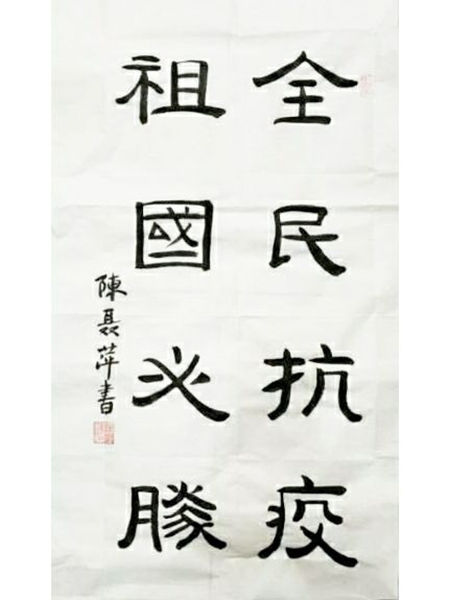 全民抗疫
祖國必勝
陳聶萍書